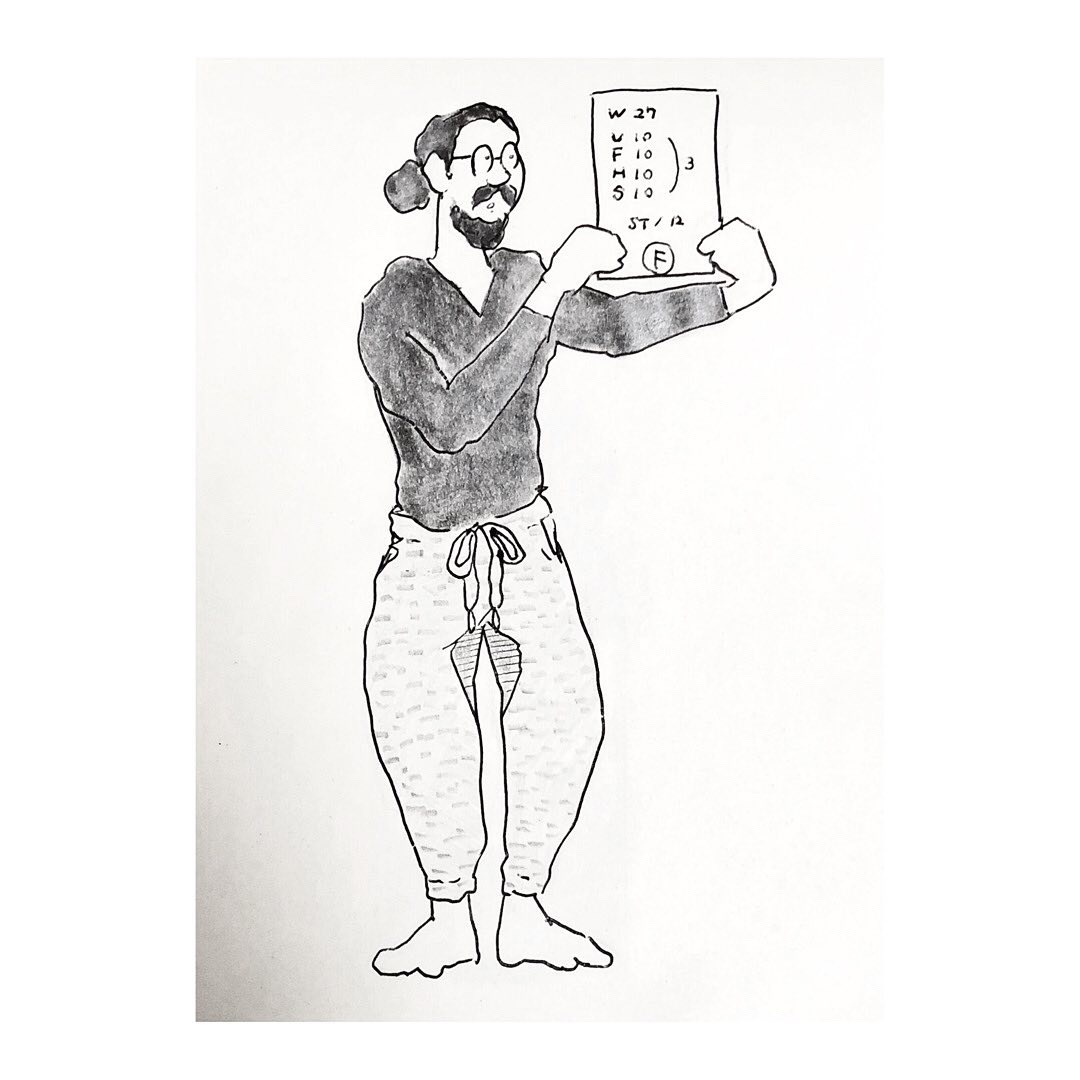 W 27
U 10
F 10
H 10
S 10
) 3
ST / 12
F